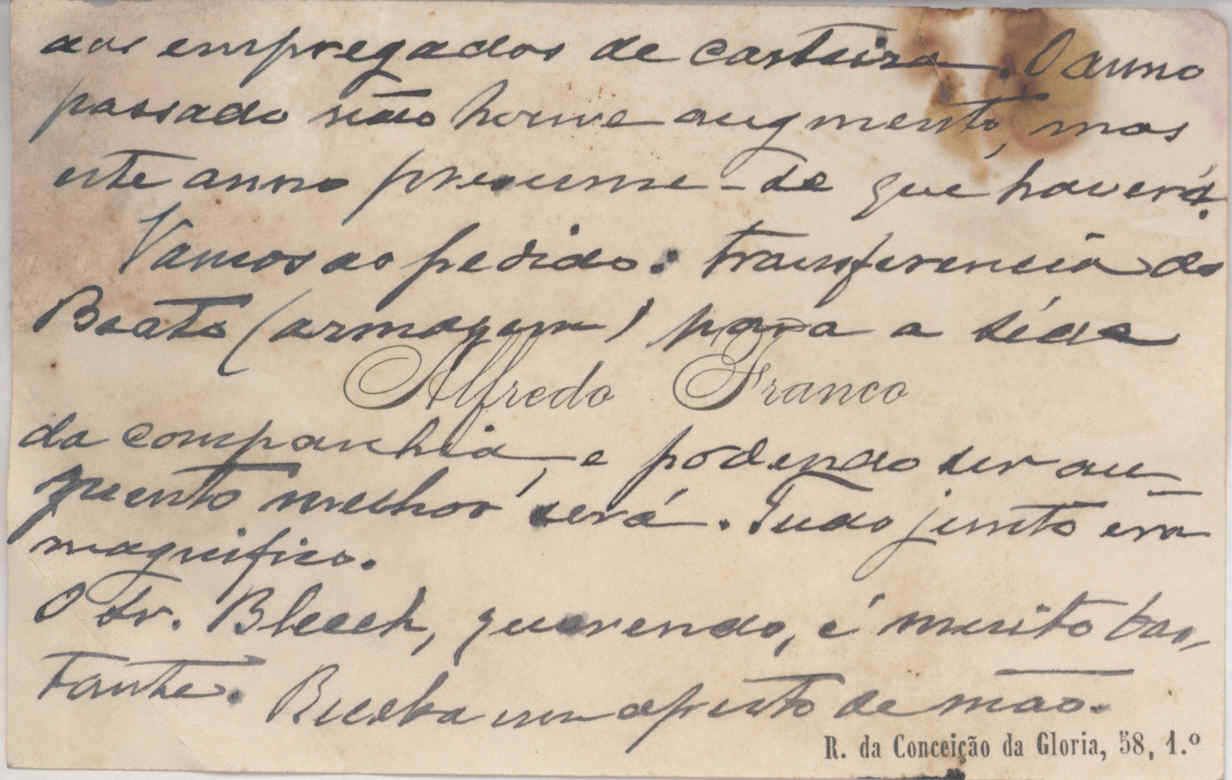 aos empregados de carteira. O anno
passado não houve augmento, mas
este anno presume-se que haverá.
Vamos ao pedido: transferencia do
Beato (armagem) para a séde
Alfredo Franco
da companhia, e podendo ser au-
gmento melhor será. Tudo junto era
magnifico.
O Sr. Bleeck, querendo, é muito bas-
tante. Receba um aperto de mão.
R. da Conceição da Gloria, 58, 1.º